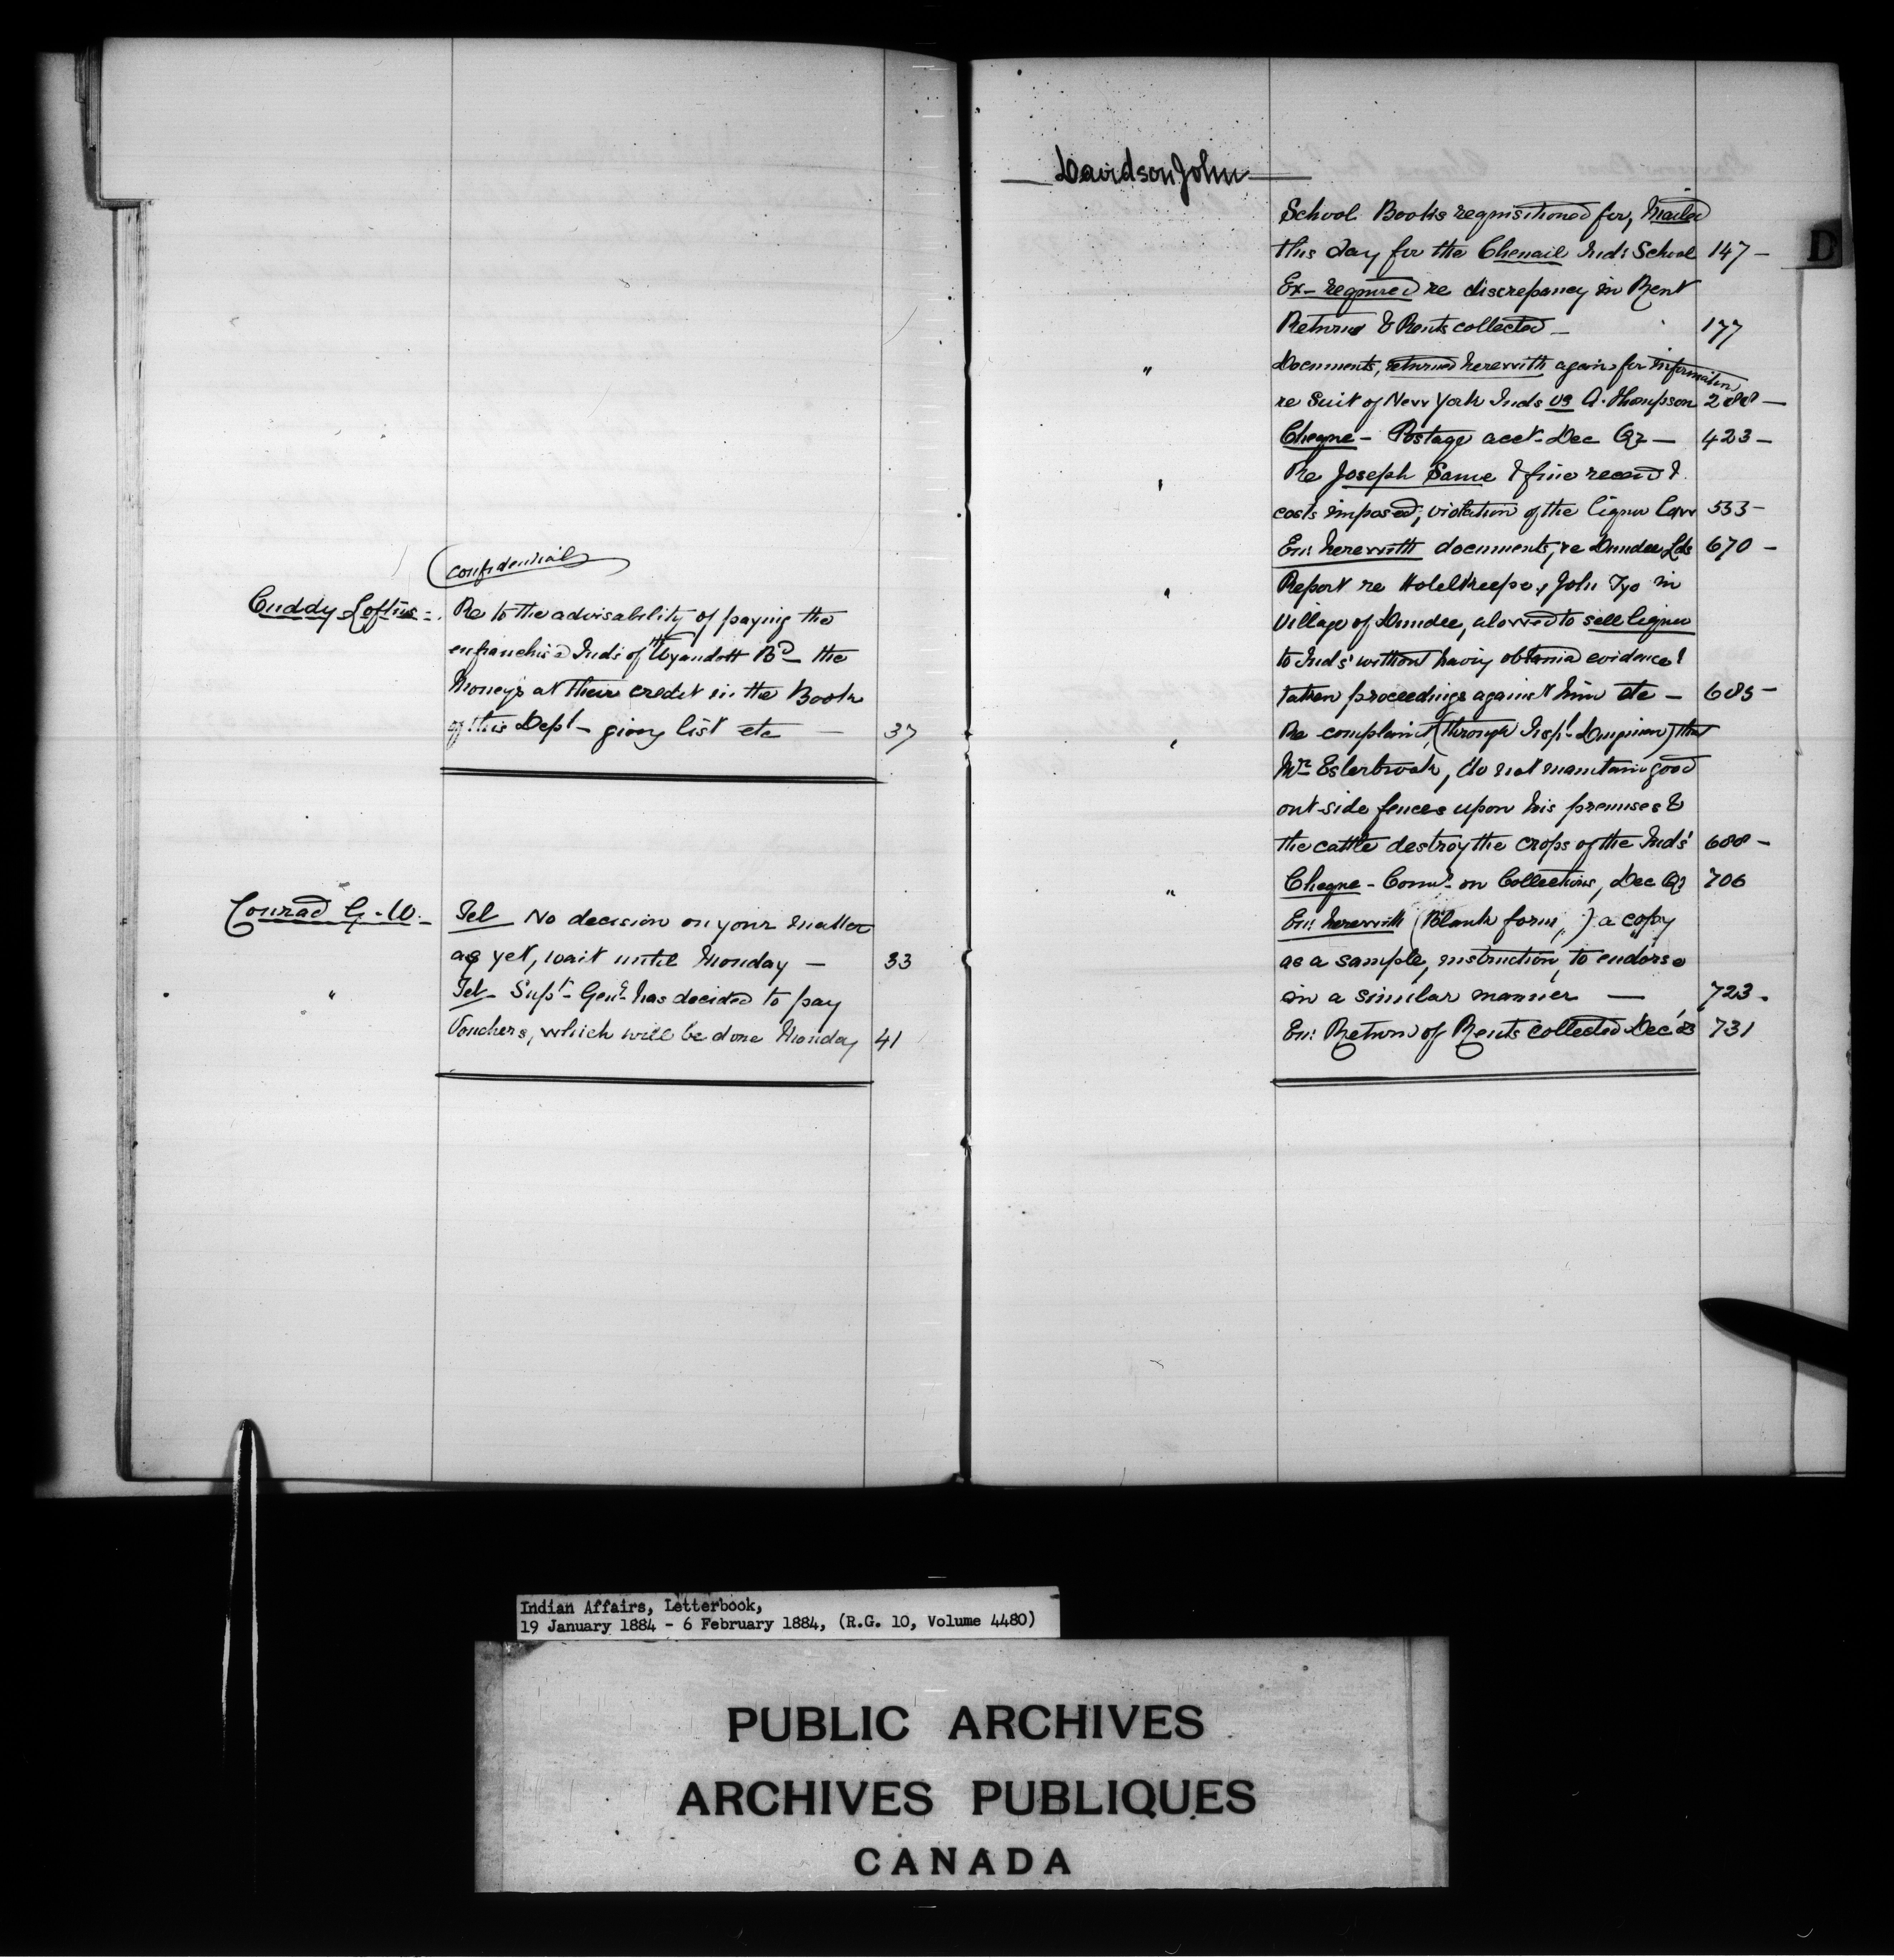 (Confidential)
Cuddy Loftus - Re to the advisability of paying the
enfranchis'd Inds of the Wyandott Bd - the
Moneys at their credit in the Books
of this Dept - giving list etc — 37
Conrad G. W. - Tel No decision on your matter
as yet, wait until Monday — 33
" Tel - Supt - Genl has decided to pay
Vouchers, which will be done Monday 41
Davidson John
School Books requisitioned for, Mailed
this day for the Chenail Inds School 147 -
Ex - required re discrepancy in Rent
Returns & Rents collected - 177
" Documents, returned herewith again for information
re Suit of New York Inds vs A. Thompson 288 -
Cheque - Postage acct - Dec Qr - 423 -
" Re Joseph Same & fine receivd &
costs imposed, violation of the liquor law 533 -
En: herewith documents, re Dundee Lds 670 -
" Report re Hotelkeeper, John Tyo in
Village of Dundee, alowed to sell liquor
to Inds' without having obtained evidence &
taken proceedings against him etc - 685 -
" Re complaint, (through Inspt ) that
Mr Esterbrook, do not maintain good
out side fences upon his premises &
the cattle destroy the crops of the Inds' 688 -
" Cheque - Comn - on Collections, Dec Qr 706
En: herewith (Blank form,) a copy
as a sample, instruction, to endorse
in a similar manner — 723 -
En: Return of Rents collected Dec '83 731
D
Indian Affairs, Letterbook,
19 January 1884 - 6 February 1884, (R.G. 10, Volume 4480)
PUBLIC ARCHIVES
ARCHIVES PUBLIQUES
CANADA